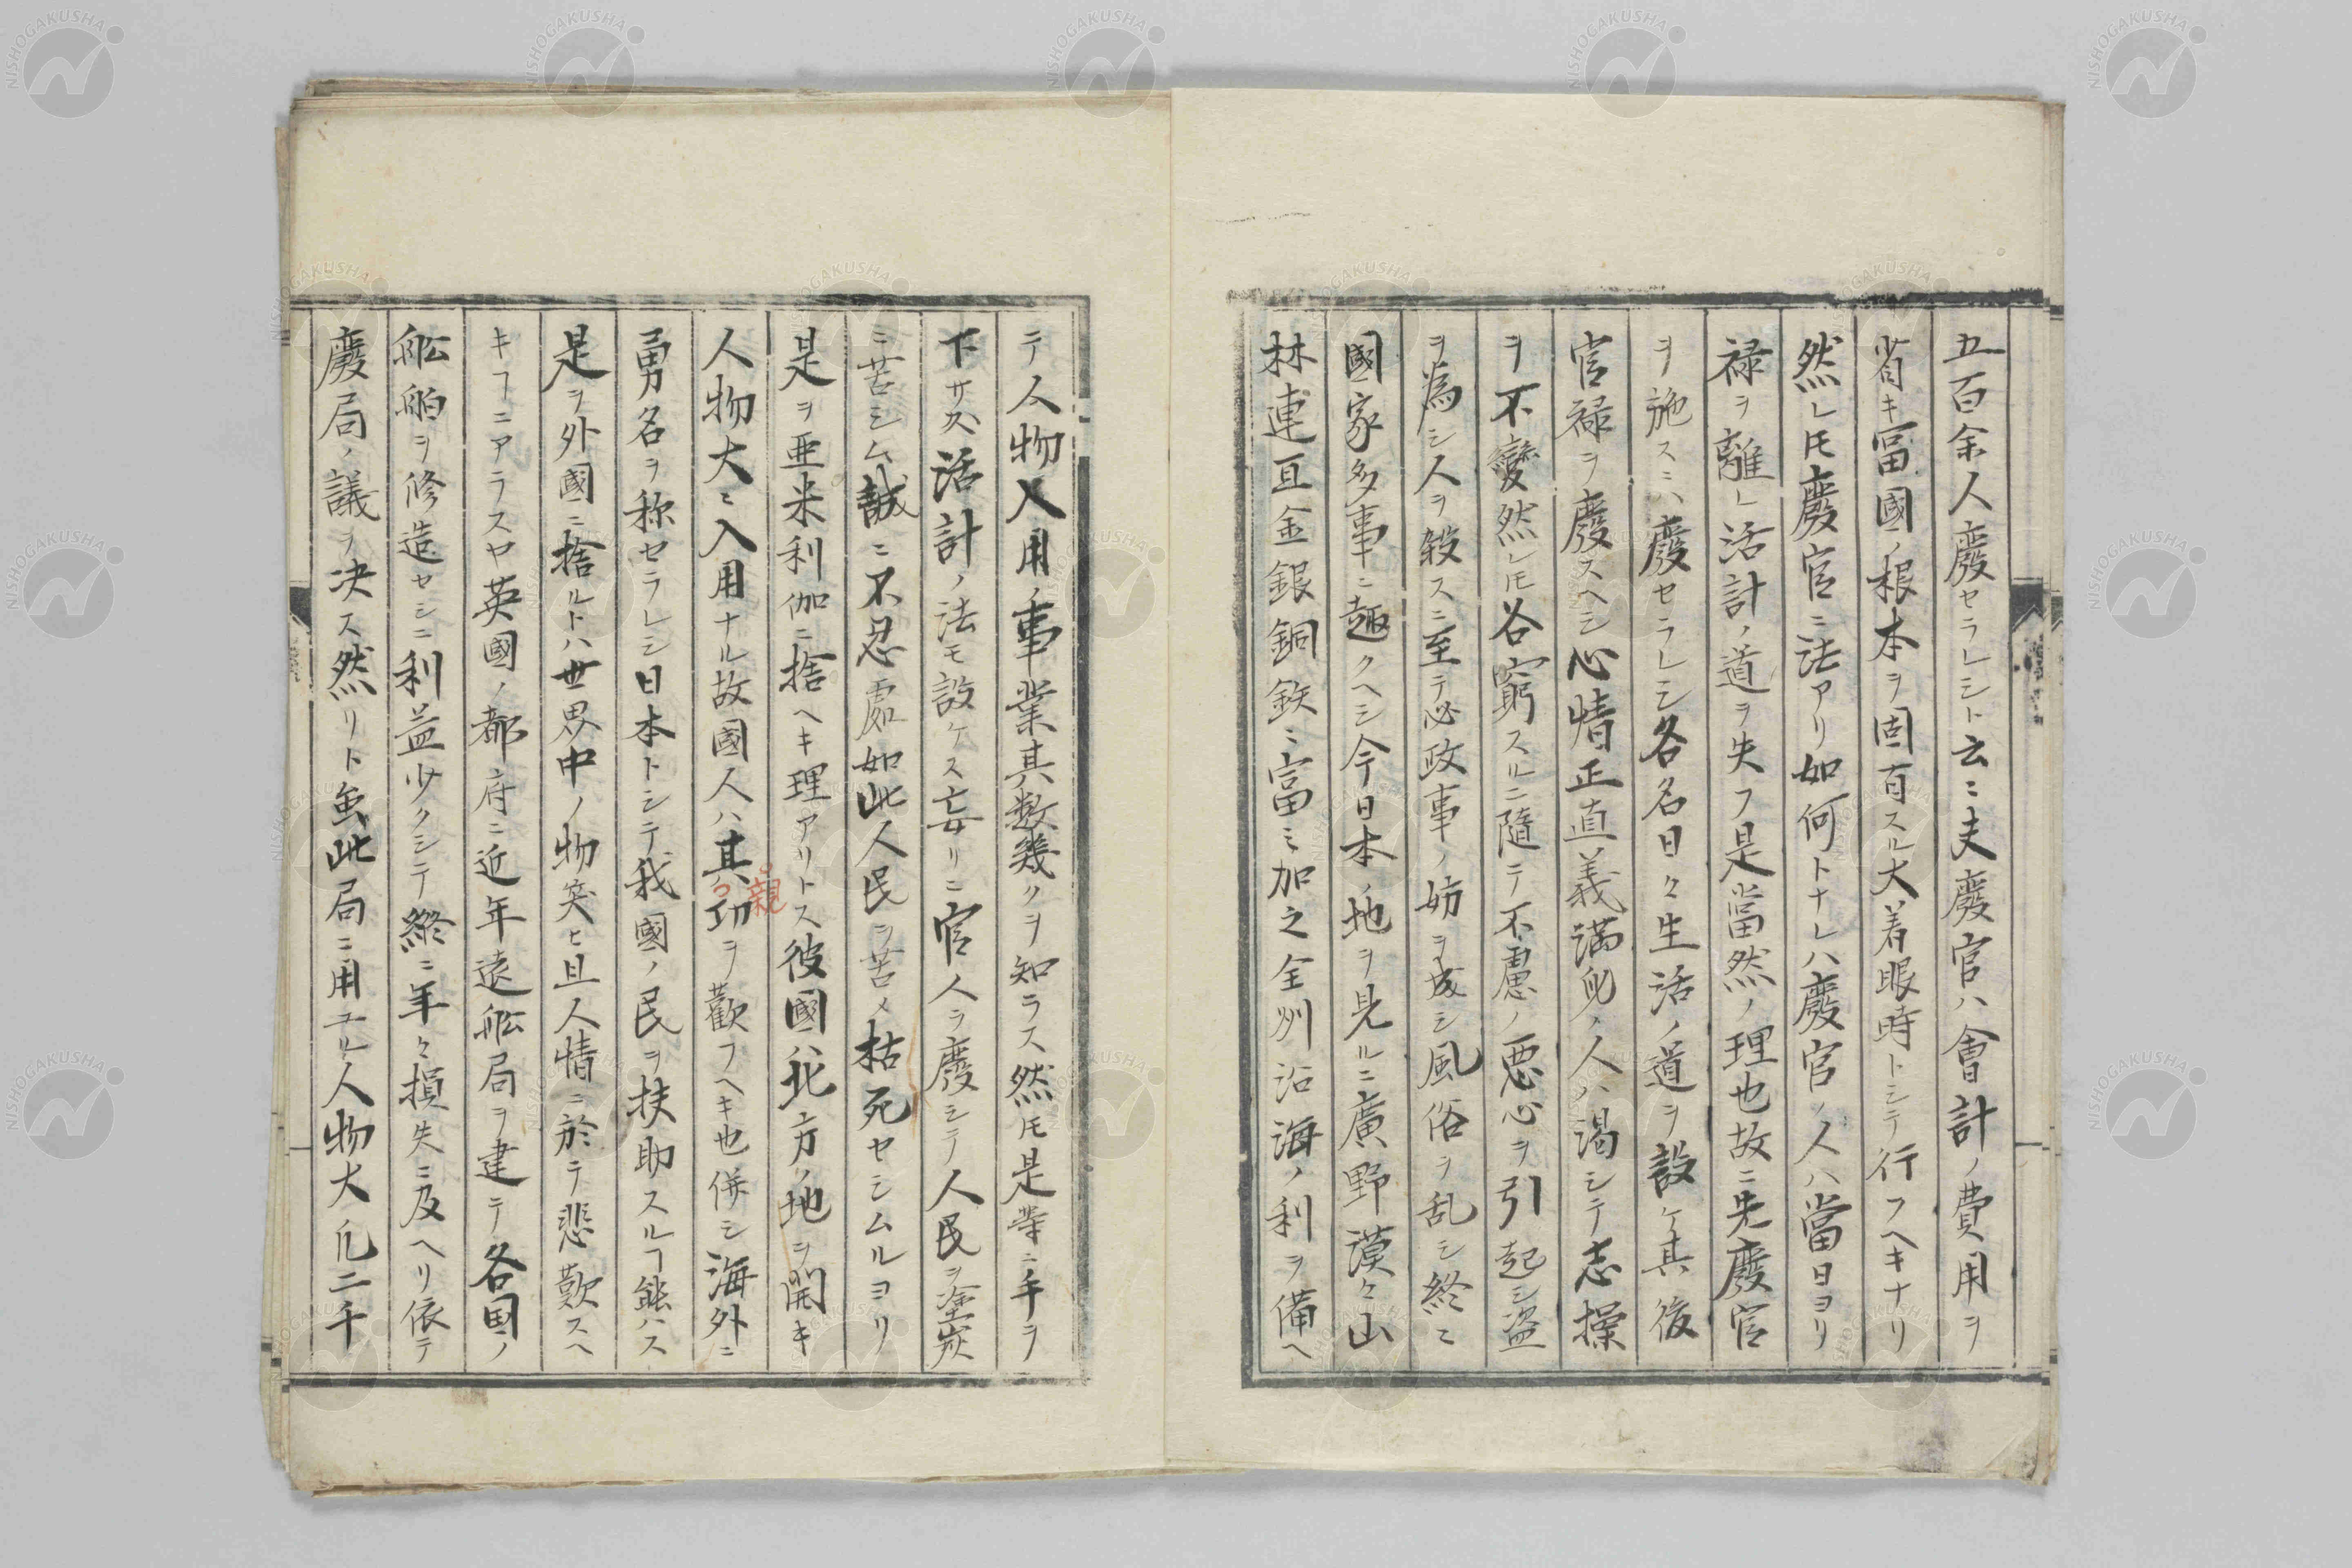 五百余人廢セラレシト云ニ夫廢官ハ會計ノ費用ヲ
省キ富國ノ根本ヲ固有スル大着眼時トシテ行フヘキナリ
然レ𪜈廢官ニ法アリ如何トナレハ廢官ノ人ハ當日ヨリ
禄ヲ離レ活計ノ道ヲ失フ是當然ノ理也故ニ先廢官
ヲ施スニハ廢セラレシ各名日々生活ノ道ヲ設ケ其後
官禄ヲ廢スヘシ心情正直義満ノ人ハ渇シテ志操
ヲ不變然レ𪜈各窮スルニ隨テ不慮ノ悪心ヲ引起シ盗
ヲ為シ人ヲ殺スニ至テ必政事ノ妨ヲ成シ風俗ヲ乱シ終ニ
國家多事ニ趣クヘシ今日本ノ地ヲ見ルニ廣野漠々山
林連亘金銀銅鉄ニ富ミ加之全州沿海ノ利ヲ備ヘ
テ人物入用ノ事業其数幾クヲ知ラス然𪜈是等ニ手ヲ
下サス活計ノ法モ設ケス妄リニ官人ヲ廢シテ人民ヲ塗炭
ニ苦シム誠ニ不忍處如此人民ヲ苦メ枯死セシムルヨリ
是ヲ亜米利伽ニ捨ヘキ理アリトス彼國ハ北方ノ地ヲ開キ
人物大ニ入用ナル故國人ハ其功ヲ歡フヘキ也併シ海外ニ
親
勇名ヲ称セラレシ日本トシテ我國ノ民ヲ扶助スルヿ能ハス
是ヲ外國ニ捨ルトハ世界中ノ物笑ヒ且人情ニ於テ悲歎スヘ
キヿニアラスヤ英國ノ都府ニ近年遠舩局ヲ建テ各国ノ
舩舶ヲ修造セシニ利益少クシテ終ニ年々損失ニ及ヘリ依テ
廢局ノ議ヲ决ス然リト虽此局ニ用ユル人物大凡二千
NISHOGAKUSHA